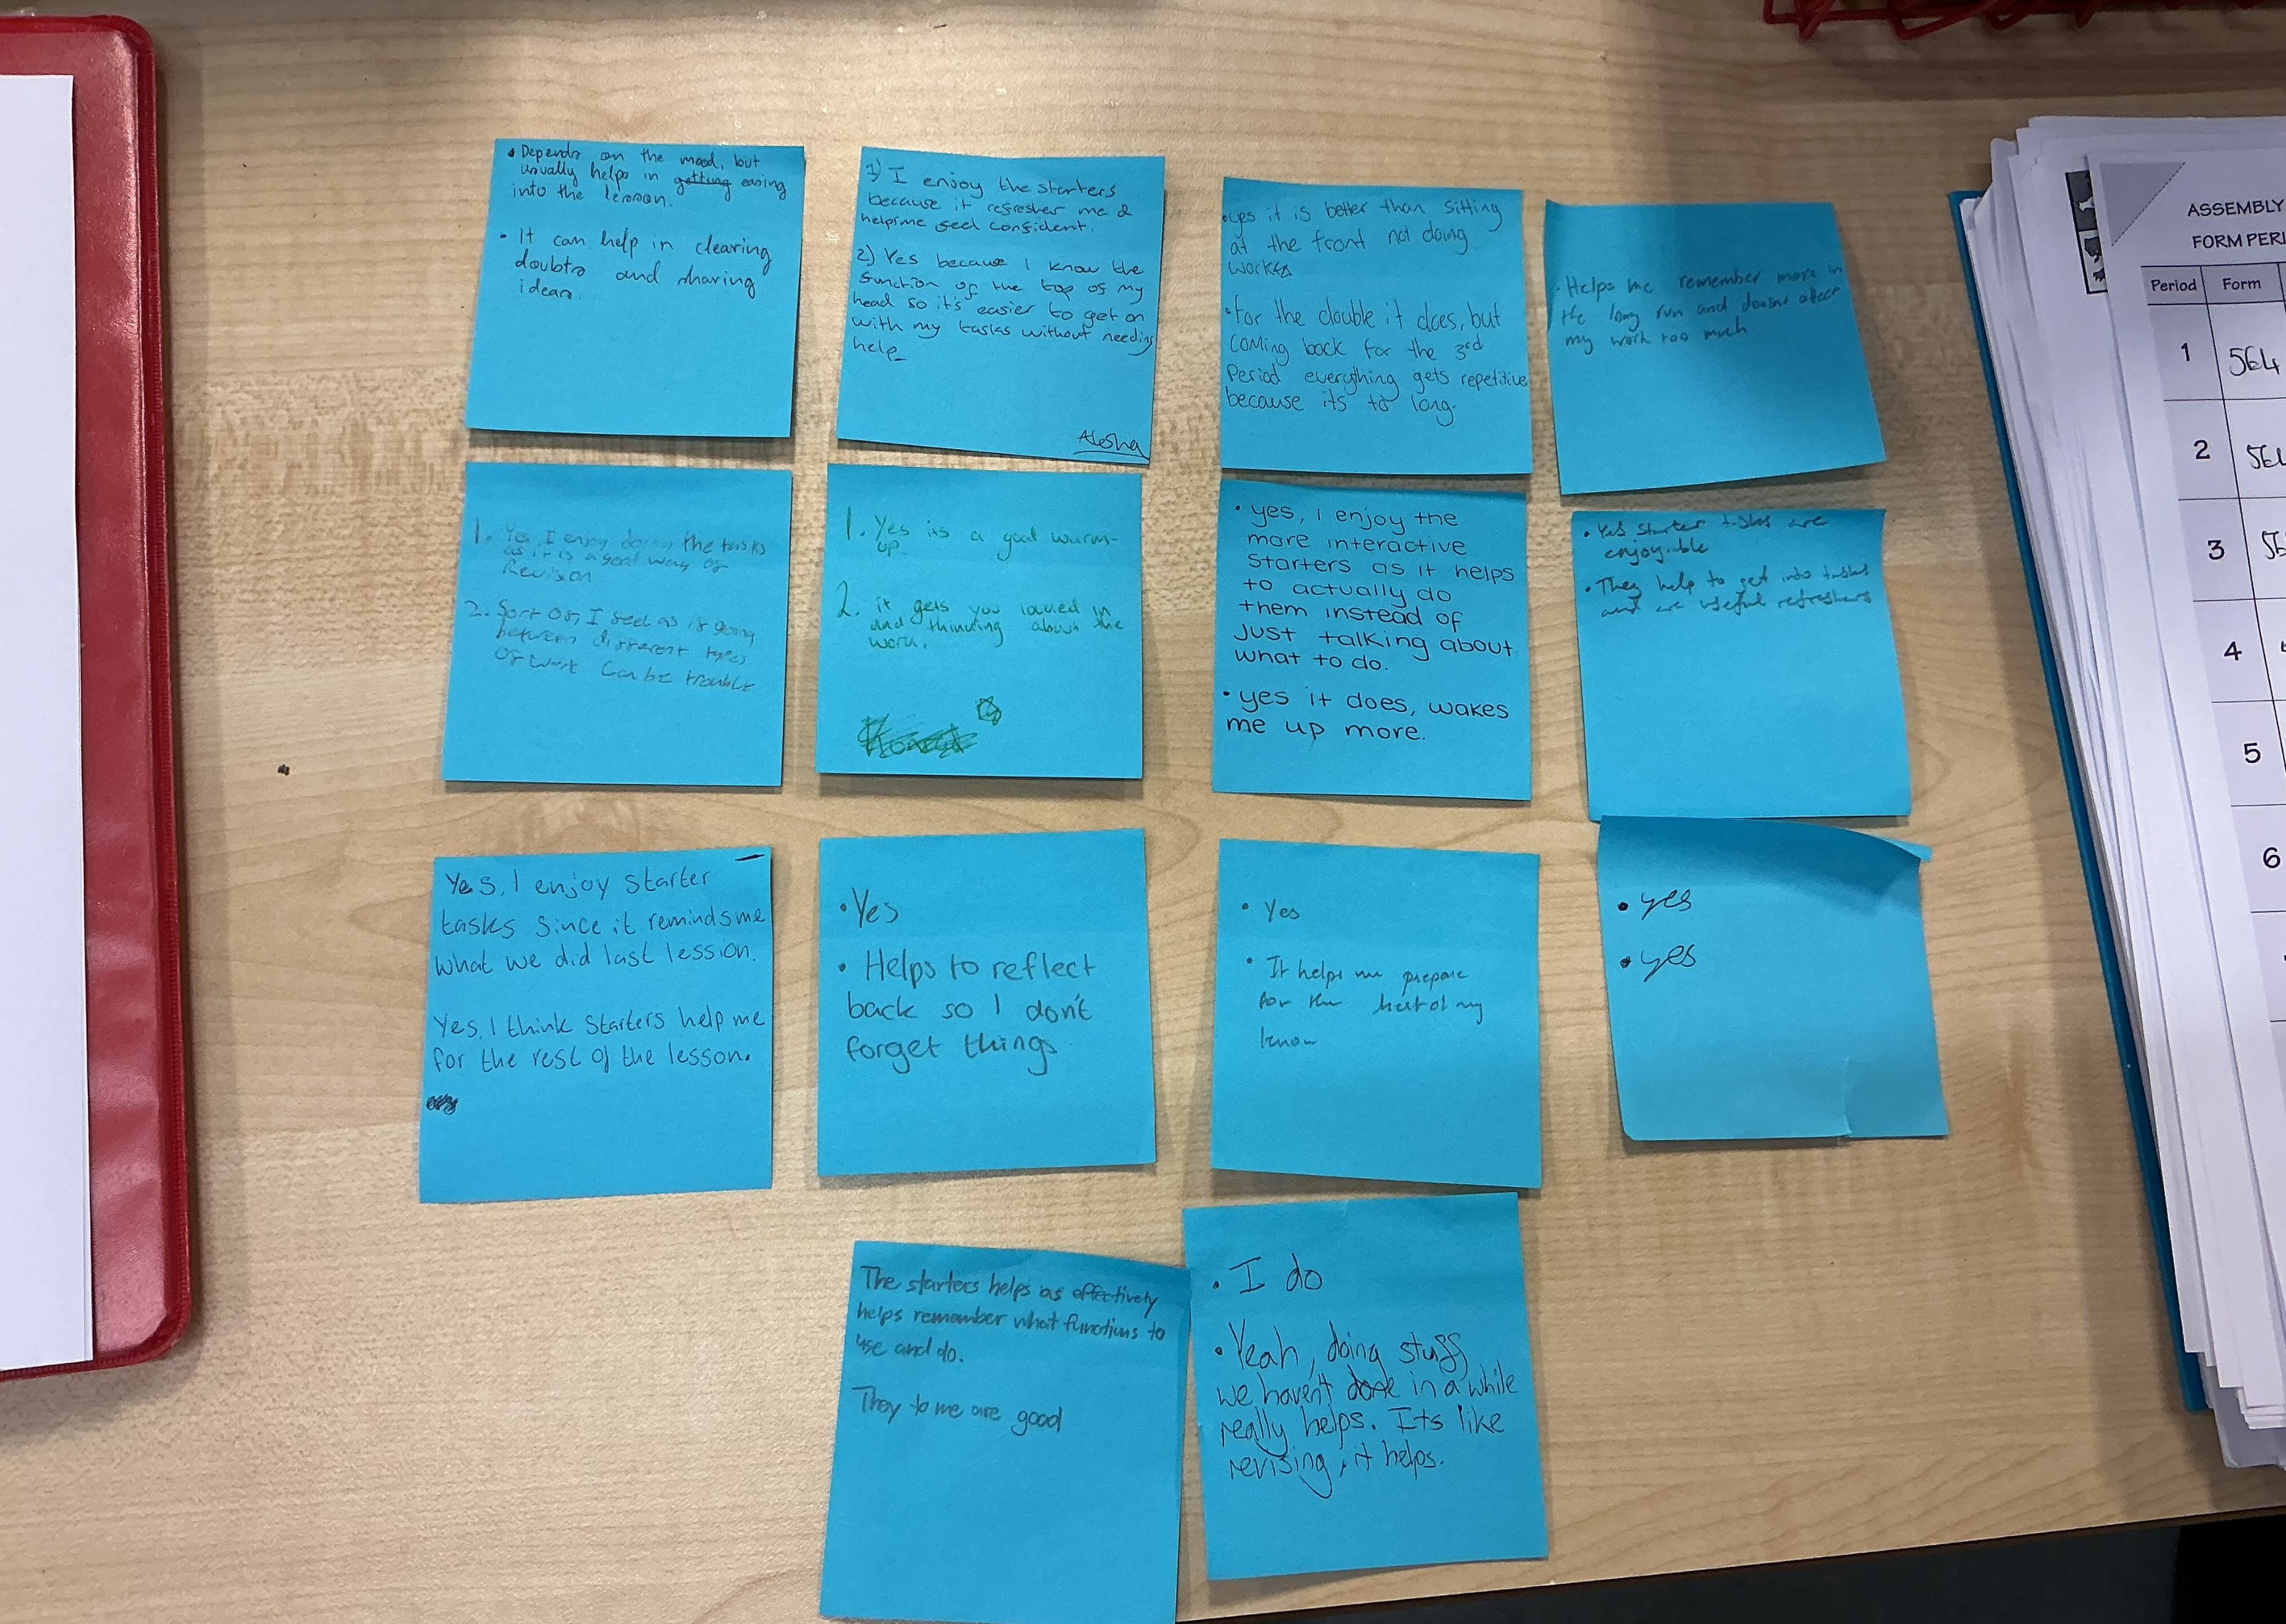 • Depends on the mood, but
usually helps in getting easing
into the lesson.
• It can help in clearing
doubts and sharing
ideas.
1) I enjoy the starters
because it refreshes me &
helps me feel confident.
2) Yes because I know the
function of the top of my
head so it's easier to get on
with my tasks without needing
help
Alesha
• yes it is better than sitting
at the front not doing
work
• For the double it does, but
coming back for the 3rd
Period everything gets repetitive
because its to long.
• Helps me remember more in
the long run and doesnt affect
my work too much
1. Yes I enjoy doing the tasks
as it is a good way of
Revision
2. Sort of, I feel as if going
between different types
of work can be trouble
1. Yes its a good warm-
up.
2. it gets you locked in
and thinking about the
work.
• yes, I enjoy the
more interactive
starters as it helps
to actually do
them instead of
just talking about
what to do.
• yes it does, wakes
me up more.
• Yes starter tasks are
enjoyable
• They help to get into tasks
and are useful refreshers
Yes, I enjoy starter
tasks since it reminds me
what we did last lession.
Yes, I think starters help me
for the rest of the lesson.
• Yes
• Helps to reflect
back so I don't
forget things
• Yes
• It helps me prepare
for the my
know
• yes
• yes
The starters helps as effectively
helps remember what functions to
use and do.
They to me are good
• I do
• Yeah, doing stuff
we haven't done in a while
really helps. Its like
revising, it helps.
ASSEMBLY
FORM PERI
Period Form
1 564
2 564
3 56
4
5
6